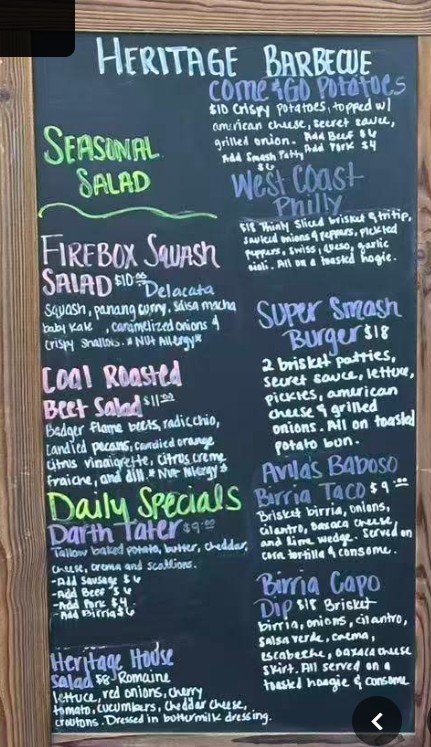 HERITAGE BARBECUE
SEASONAL
SALAD
FIREBOX SQUASH
SALAD $10.00
Delacata
Squash, panang curry, salsa macha
baby kale, caramelized onions &
crispy shallots. *NUT Allergy*
Coal Roasted
Beet Salad $11.00
Badger flame beets, radicchio,
candied pecans, candied orange
citrus vinaigrette, citrus creme
fraiche, and dill. *Nut Allergy*
Daily Specials
Darth Tater $9.00
Tallow baked potato, butter, cheddar,
cheese, crema and scallions.
-Add Sausage $6
-Add Beef $6
-Add Pork $4
-Add Birria $6
Heritage House
Salad $8 Romaine
lettuce, red onions, cherry
tomato, cucumbers, cheddar cheese,
croutons. Dressed in buttermilk dressing.
Come & Go Potatoes
$10 Crispy Potatoes, topped w/
american cheese, secret sauce,
grilled onion. Add Beef $6
Add Pork $4
Add Smash Patty
$6
West Coast
Philly
$18 Thinly Sliced brisket & tritip,
sauteed onions & peppers, pickled
peppers, swiss, queso, garlic
aioli. All on a toasted hogie.
Super Smash
Burger $18
2 brisket patties,
secret sauce, lettuce,
pickles, american
cheese & grilled
onions. All on toasted
potato bun.
Avilas Baboso
Birria Taco $9.00
Brisket birria, onions,
cilantro, oaxaca cheese
and lime wedge. Served on
corn tortilla & consome.
Birria Capo
Dip $18 Brisket
birria, onions, cilantro,
salsa verde, crema,
escabeche, oaxaca cheese
skirt. All served on a
toasted hoagie & consome